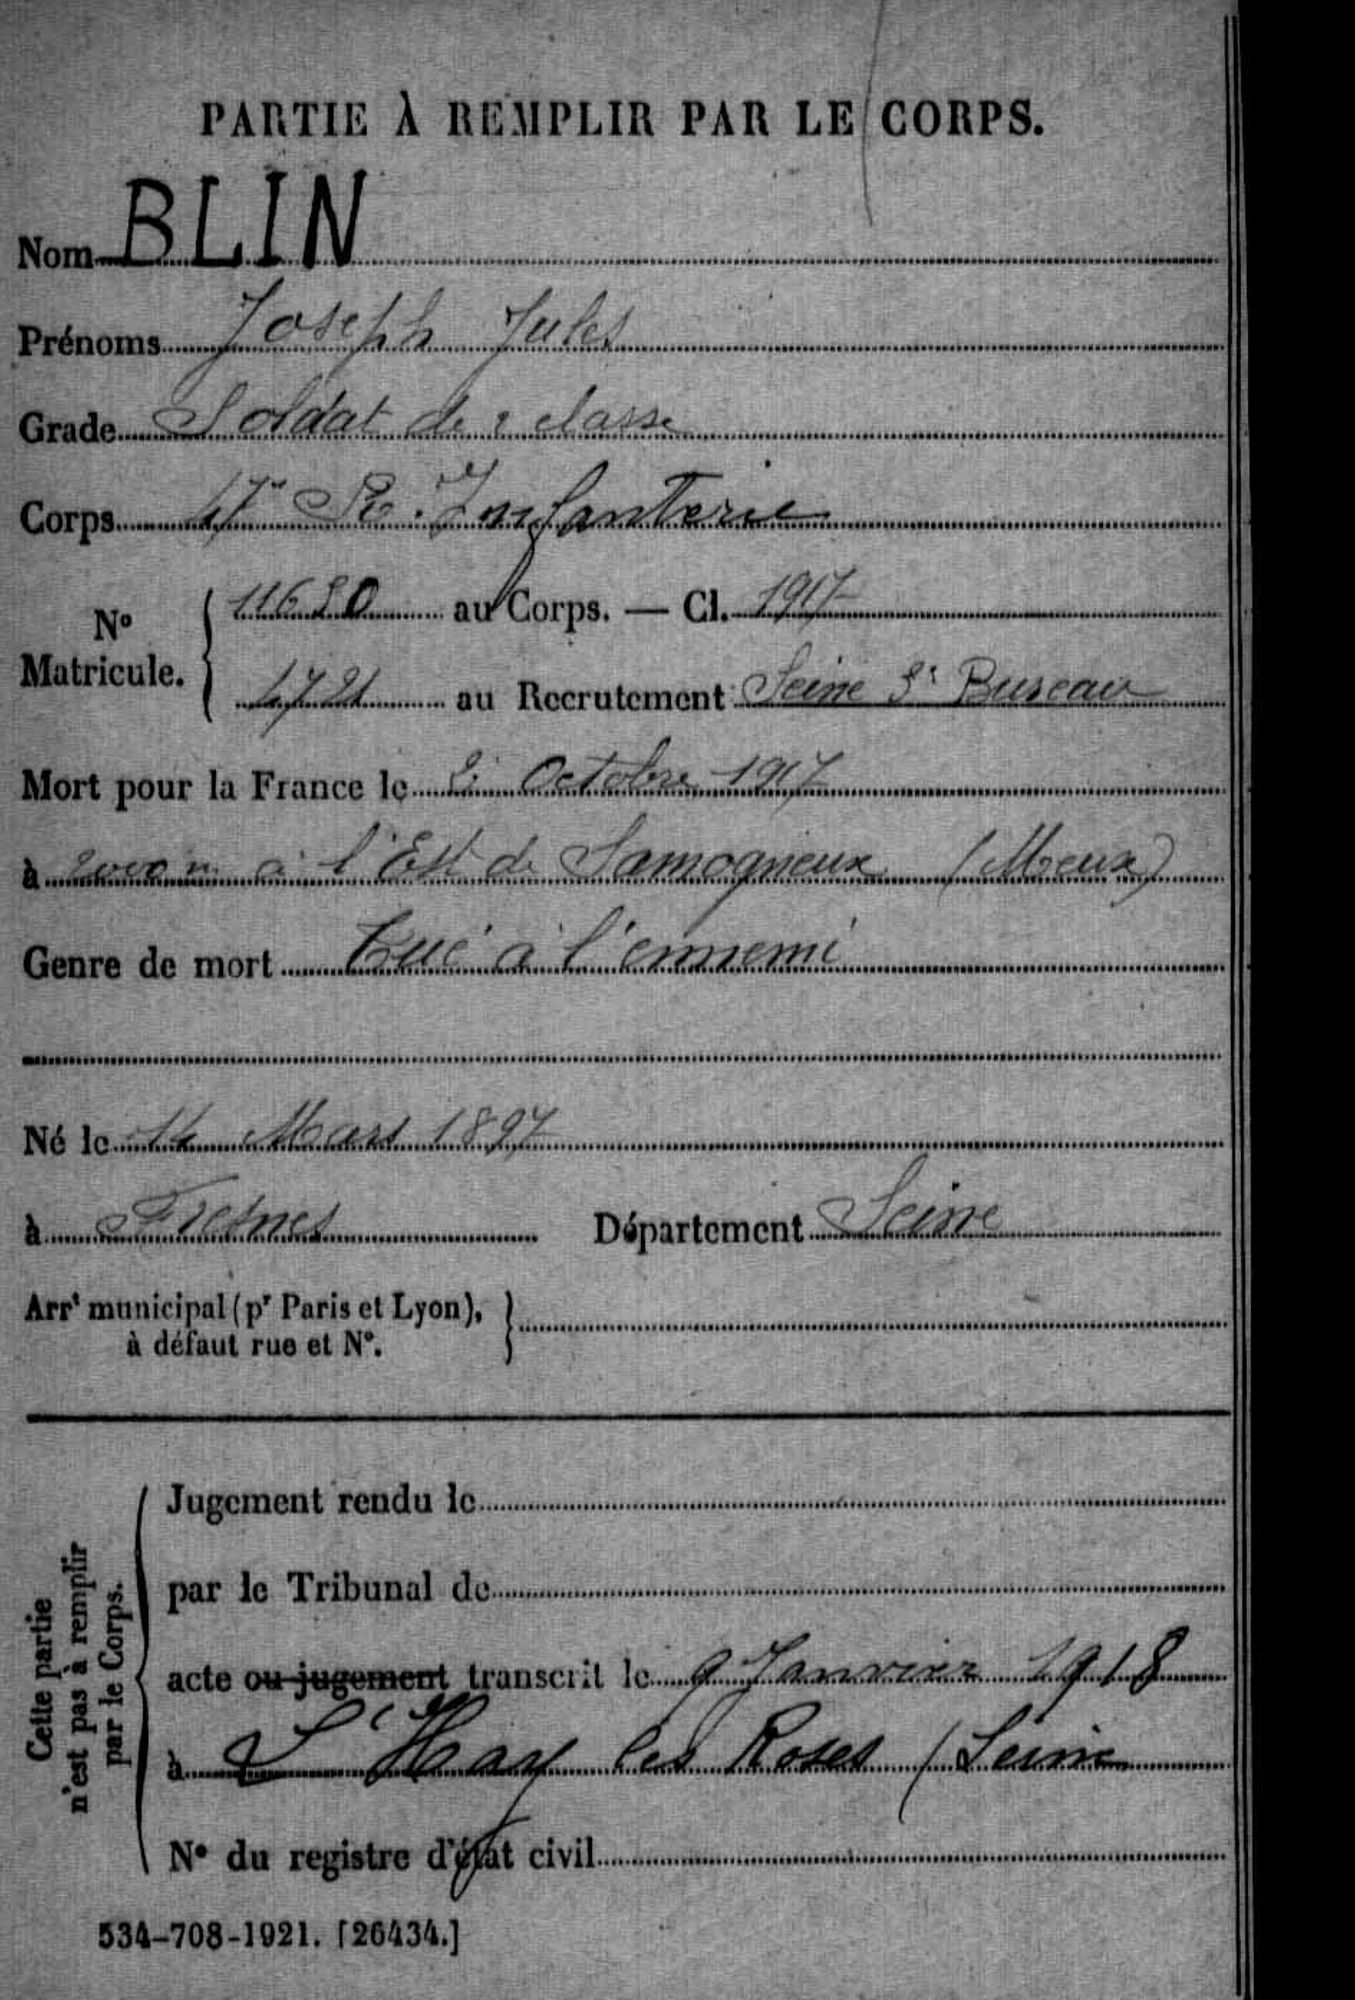 PARTIE À REMPLIR PAR LE CORPS.
Nom BLIN
Prénoms Joseph Jules
Grade Soldat de 2 classe
Corps 47e Rt. Infanterie
No Matricule. 11680 au Corps. — Cl. 1917
4721 au Recrutement Seine 3e Bureau
Mort pour la France le Octobre 1917
à 2000 m à l'Est de Samogneux (Meuse)
Genre de mort Tué à l'ennemi
Né le 14 Mars 1897
à Fresnes Département Seine
Arrt municipal (pr Paris et Lyon),
à défaut rue et No.
Cette partie n'est pas à remplir par le Corps.
Jugement rendu le
par le Tribunal de
acte ou jugement transcrit le 9 Janvier 1918
à L'Hay les Roses (Seine
No du registre d'état civil
534-708-1921. [26434.]